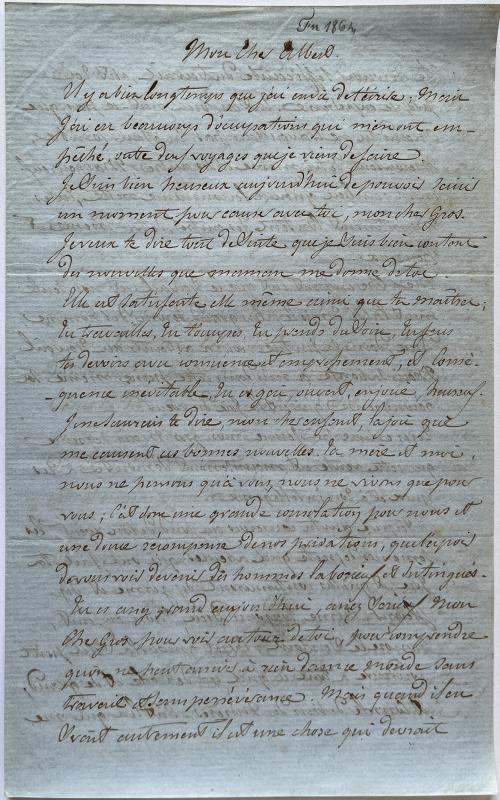 Fin 1864
Mon cher Albert.
Il y a bien longtemps que j'ai envie de t'écrire; Mais
J'ai eu beaucoup d'occupations qui m'en ont em-
pêché, outre deux voyages que je viens de faire.
Je suis bien heureux aujourd'hui de pouvoir saisir
un moment pour causer avec toi, mon cher Gros.
Je veux te dire tout de suite que je suis bien content
des nouvelles que maman me donne de toi.
Elle est satisfaite elle même ainsi que tes maîtres;
tu travailles, tu t'occupes, tu prends du soin, tu fais
tes devoirs avec conscience et empressement, et consé-
-quence inévitable, tu es gai, ouvert, enjoué, heureux.
Je ne saurais te dire, mon cher enfant, la joie que
me causent ces bonnes nouvelles. Ta mère et moi,
nous ne pensons qu'à vous, nous ne vivons que pour
vous; C'est donc une grande consolation pour nous et
une douce récompense de nos privations, que l'espoir
de vous voir devenir des hommes laborieux et distingués.
Tu es assez grand aujourd'hui, assez Mon
Cher Gros pour voir autour de toi, pour comprendre
qu'on ne peut arriver à rien dans ce monde sans
travail et sans persévérance. Mais quand il en
serait autrement il est une chose qui devrait